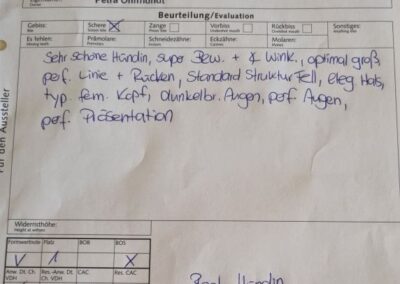 Eigentümer:
Owner
Petra Ohmundt
Beurteilung/Evaluation
Gebiss: Schere X Zange Vorbiss Rückbiss Sonstiges:
Bite Scissor bite Pincer bite Undershot mouth Overshot mouth Anything else
Es fehlen: Prämolare: Schneidezähne: Eckzähne: Molaren:
Missing teeth Premolars Incisors Canines Molars
Sehr schöne Hündin, super Bew. + & Wink., optimal groß,
perf. Linie + Rücken, Standard Struktur Fell, eleg. Hals,
typ. fem. Kopf, dunkelbr. Augen, perf. Augen,
perf. Präsentation
Für den Aussteller
Widerristhöhe:
Height at withers
Formwertnote Platz BOB BOS
V 1 X
Anw. Dt. Ch. VDH Res.-Anw. Dt. Ch. VDH CAC Res. CAC
Hündin